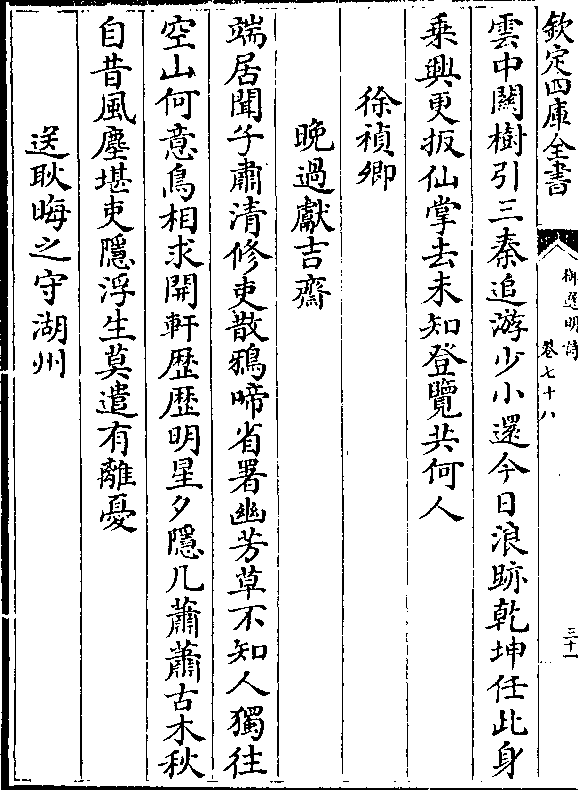 欽定四庫全書
御選明詩
卷七十八
三十一
雲中闗樹引三秦追游少小還今日浪跡乾坤任此身
乗興更扳仙掌去未知登覽共何人
徐禎卿
晚過獻吉齋
端居聞子肅清修吏散鴉啼省署幽芳草不知人獨往
空山何意鳥相求開軒歴歴明星夕隱几蕭蕭古木秋
自昔風塵堪吏隱浮生莫遣有離憂
送耿晦之守湖州